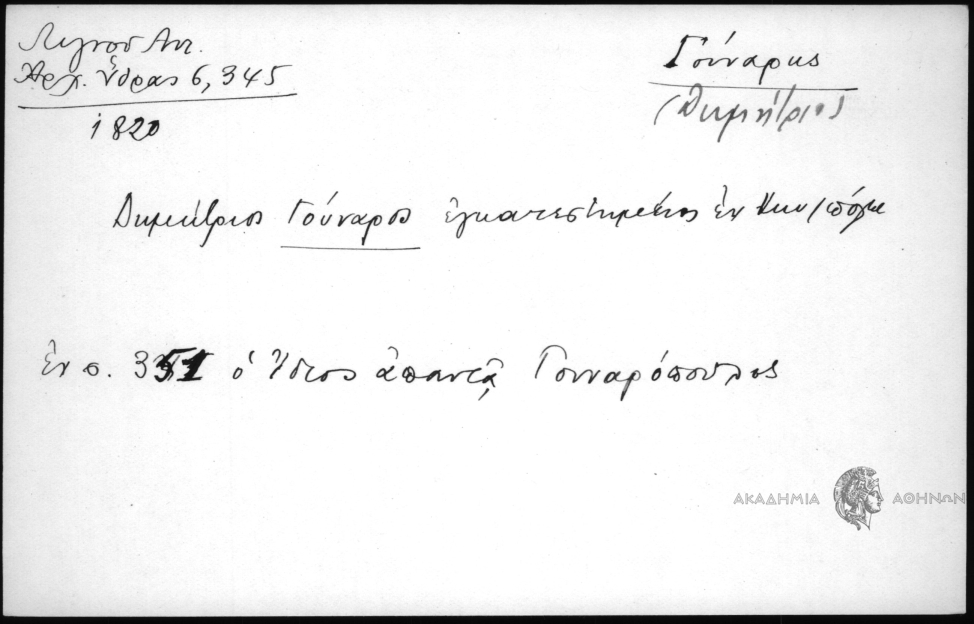 Λιγνοῦ Ἀντ.
Ἀρχ. Ὕδρας 6, 345
1820
Γούναρης
(Δημήτριος)
Δημήτριος Γούναρος ἐγκατεστημένος ἐν Κων/πόλει
ἐν σ. 351 ὁ ἴδιος ἀπαντᾷ Γουναρόπουλος
ΑΚΑΔΗΜΙΑ ΑΘΗΝΩΝ